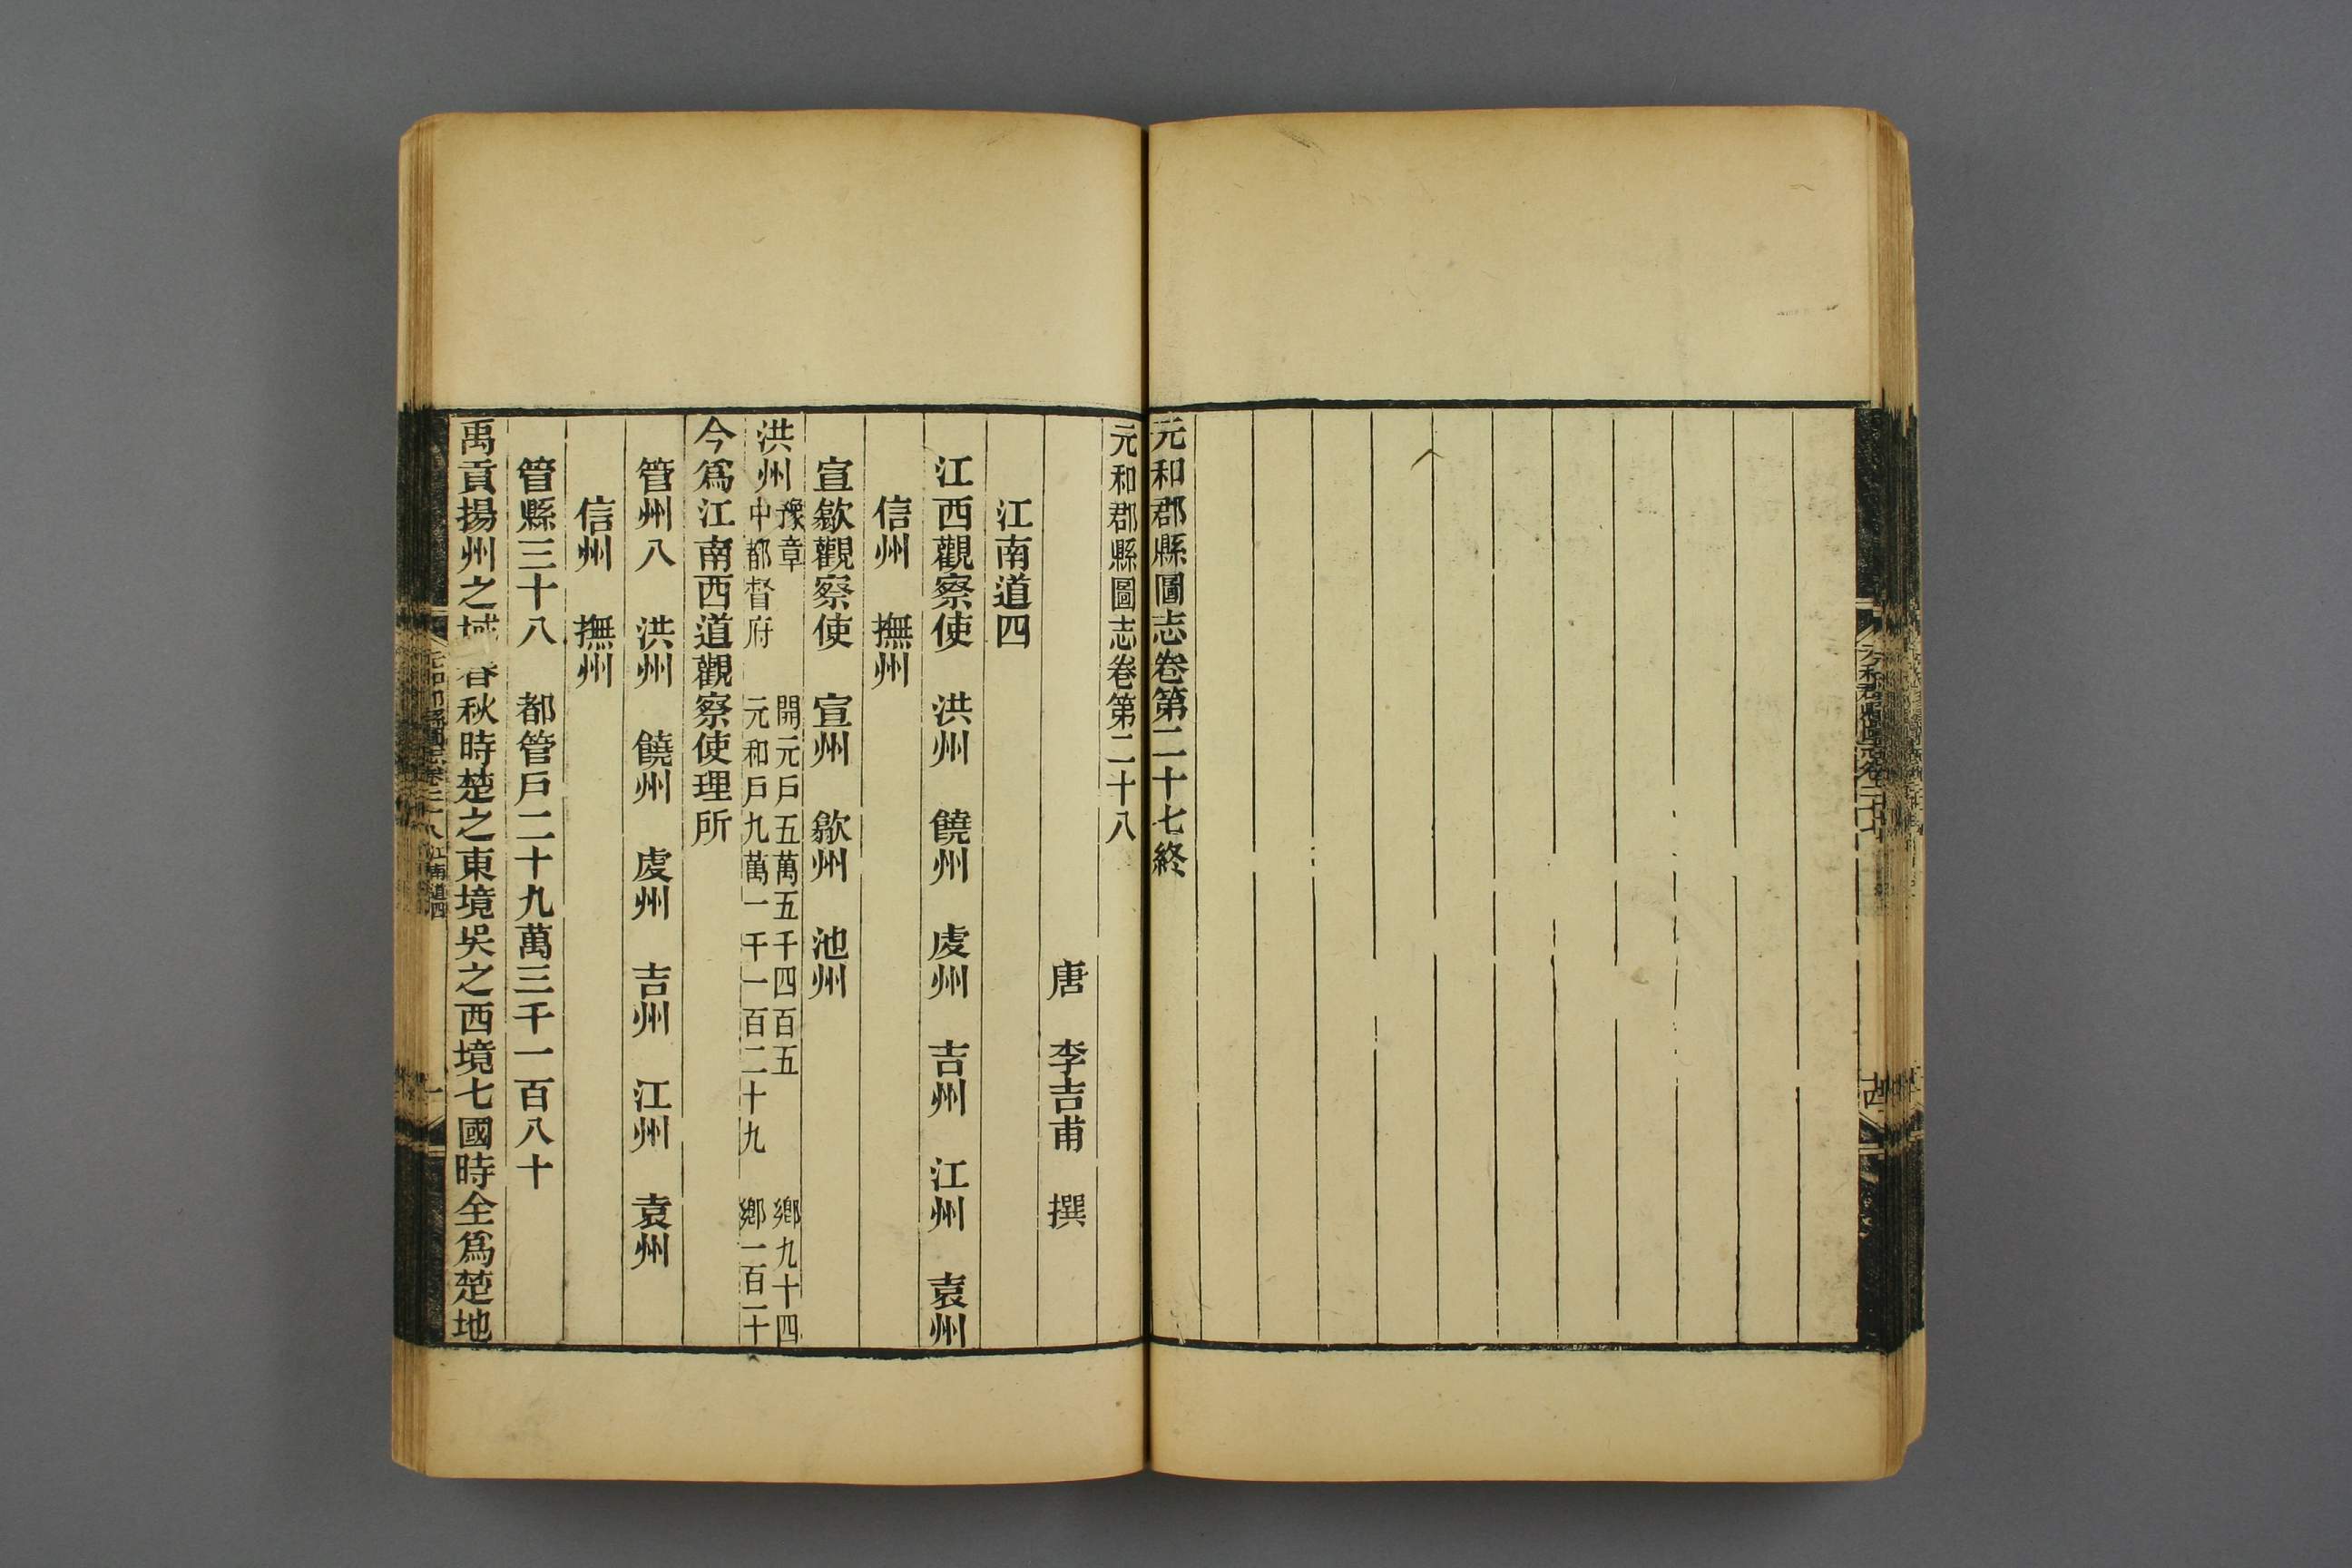 元和郡縣圖志卷第二十七終
元和郡縣圖志卷第二十八
唐 李吉甫 撰
江南道四
江西觀察使 洪州 饒州 虔州 吉州 江州 袁州
信州 撫州
宣歙觀察使 宣州 歙州 池州
洪州 豫章 開元戶五萬五千四百五 鄉九十四
中都督府 元和戶九萬一千一百二十九 鄉一百一十
今爲江南西道觀察使理所
管州八 洪州 饒州 虔州 吉州 江州 袁州
信州 撫州
管縣三十八 都管戶二十九萬三千一百八十
禹貢揚州之域春秋時楚之東境吳之西境七國時全爲楚地
江南道四
一